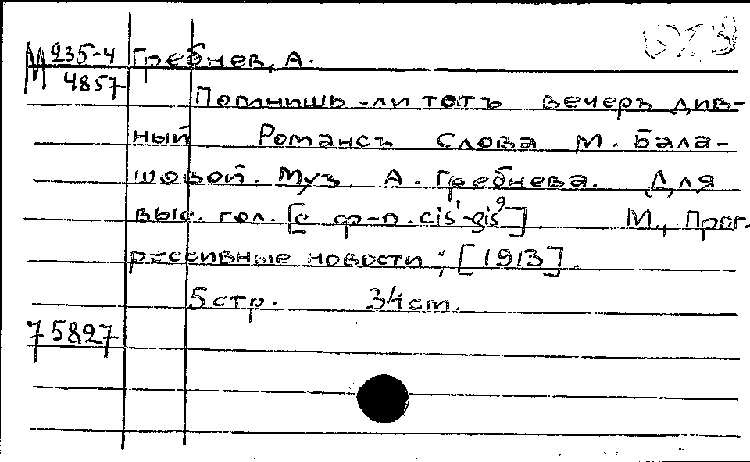 М 235-4
4857
Гребнев, А.
Помнишь-ли тотъ вечеръ див-
ный Романсъ Слова М. Бала-
шовой. Муз. А. Гребнева. Для
выс. гол. [с ф-п. cis¹-gis²] М., Прог-
рессивные новости, [1913].
5 стр. 34 ст.
75827